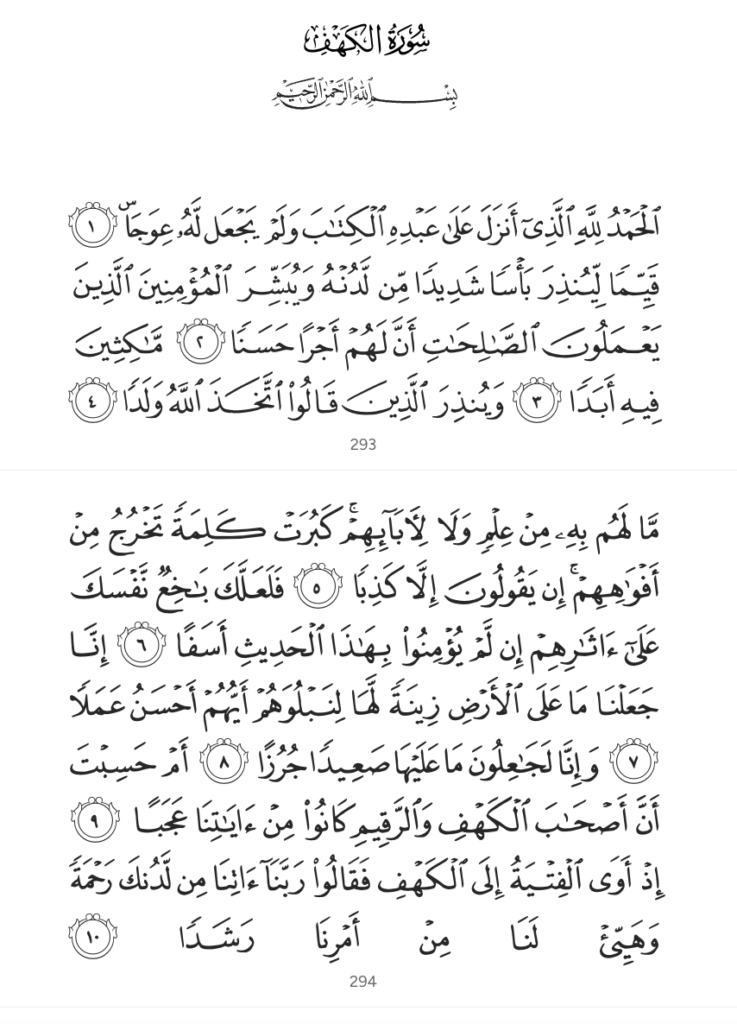 سُورَةُ الكَهْفِ
بِسْمِ اللَّهِ الرَّحْمَٰنِ الرَّحِيمِ
ٱلْحَمْدُ لِلَّهِ ٱلَّذِىٓ أَنزَلَ عَلَىٰ عَبْدِهِ ٱلْكِتَٰبَ وَلَمْ يَجْعَل لَّهُۥ عِوَجَاۜ ١
قَيِّمًا لِّيُنذِرَ بَأْسًا شَدِيدًا مِّن لَّدُنْهُ وَيُبَشِّرَ ٱلْمُؤْمِنِينَ ٱلَّذِينَ
يَعْمَلُونَ ٱلصَّٰلِحَٰتِ أَنَّ لَهُمْ أَجْرًا حَسَنًا ٢ مَّٰكِثِينَ
فِيهِ أَبَدًا ٣ وَيُنذِرَ ٱلَّذِينَ قَالُوا۟ ٱتَّخَذَ ٱللَّهُ وَلَدًا ٤
293
مَّا لَهُم بِهِۦ مِنْ عِلْمٍ وَلَا لِءَابَآئِهِمْ ۚ كَبُرَتْ كَلِمَةً تَخْرُجُ مِنْ
أَفْوَٰهِهِمْ ۚ إِن يَقُولُونَ إِلَّا كَذِبًا ٥ فَلَعَلَّكَ بَٰخِعٌ نَّفْسَكَ
عَلَىٰٓ ءَاثَٰرِهِمْ إِن لَّمْ يُؤْمِنُوا۟ بِهَٰذَا ٱلْحَدِيثِ أَسَفًا ٦ إِنَّا
جَعَلْنَا مَا عَلَى ٱلْأَرْضِ زِينَةً لَّهَا لِنَبْلُوَهُمْ أَيُّهُمْ أَحْسَنُ عَمَلًا
٧ وَإِنَّا لَجَٰعِلُونَ مَا عَلَيْهَا صَعِيدًا جُرُزًا ٨ أَمْ حَسِبْتَ
أَنَّ أَصْحَٰبَ ٱلْكَهْفِ وَٱلرَّقِيمِ كَانُوا۟ مِنْ ءَايَٰتِنَا عَجَبًا ٩
إِذْ أَوَى ٱلْفِتْيَةُ إِلَى ٱلْكَهْفِ فَقَالُوا۟ رَبَّنَآ ءَاتِنَا مِن لَّدُنكَ رَحْمَةً
وَهَيِّئْ لَنَا مِنْ أَمْرِنَا رَشَدًا ١٠
294